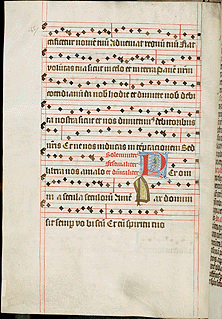 tificetur nomen tuū Adveniat regnū tuū Fiat
voluntas tua sicut in celo et in terra panem nrm
cotidianū da nob hodie et dimitte nob debi
ta nostra sicut et nos dimittim debitoribus
nris Et ne nos inducas in temptationem Sed
Solemniter
libera nos a malo et P Per om
nia secula seculorū Amē Pax domini
sit semp vo biscū Et cū spiritu tuo